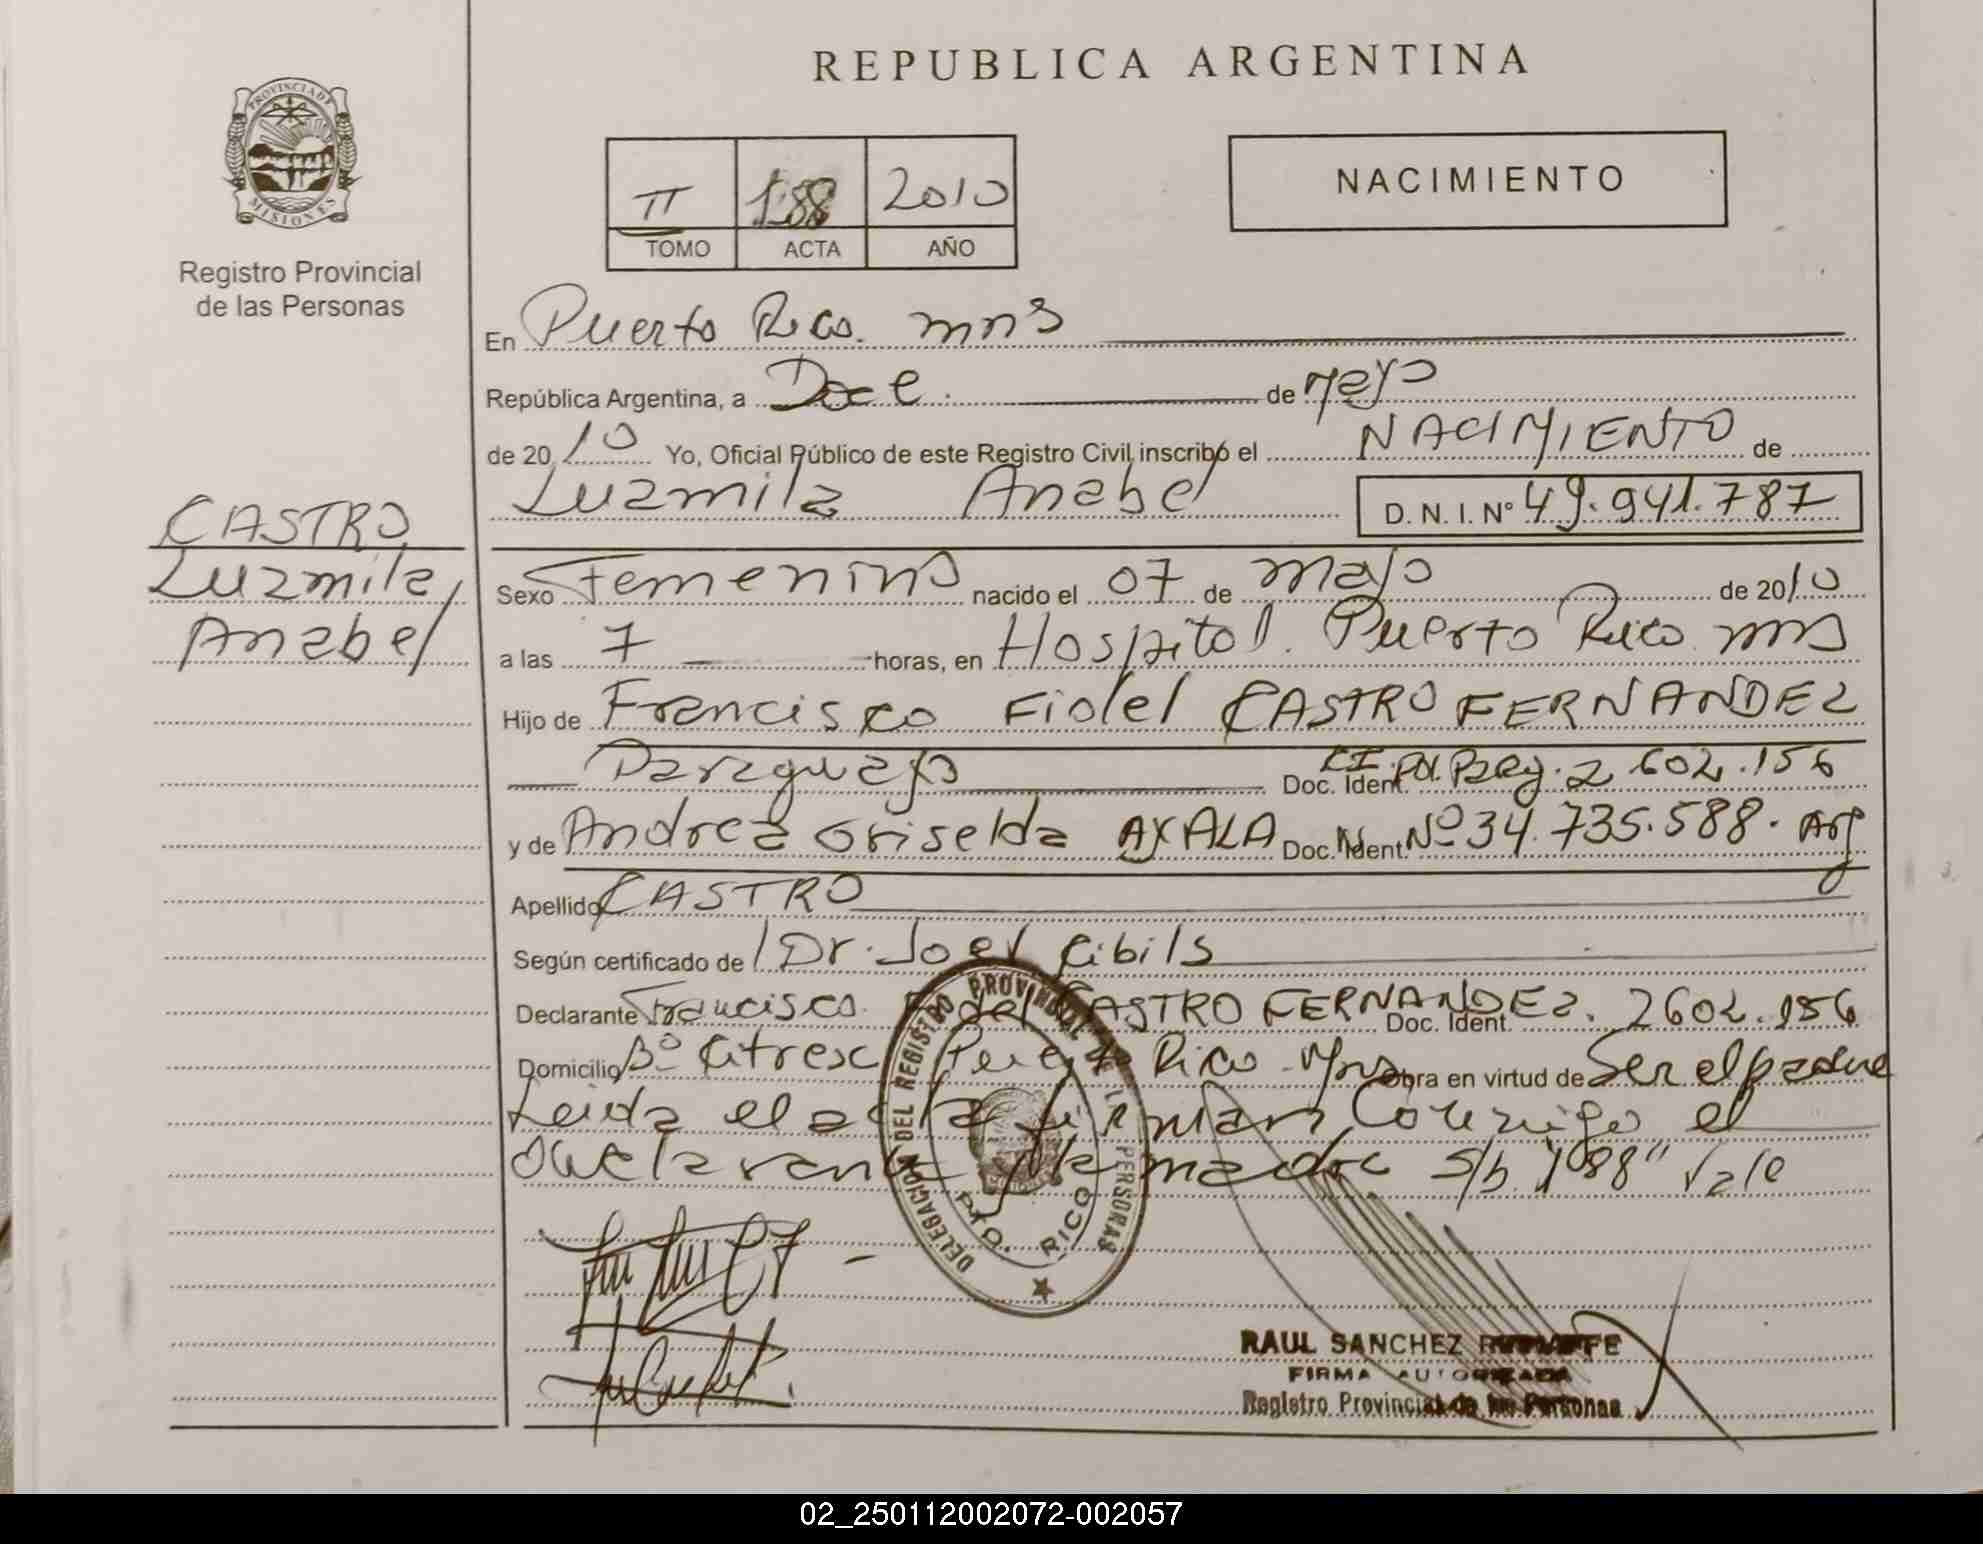 REPUBLICA ARGENTINA
PROVINCIA DE
MISIONES
Registro Provincial
de las Personas
II 188 2010
TOMO ACTA AÑO
NACIMIENTO
En Puerto Rico. mns
República Argentina, a Doce de Mayo
de 2010 Yo, Oficial Público de este Registro Civil inscribo el NACIMIENTO de
Luzmila Anabel D. N. I. N° 49.941.787
CASTRO
Luzmila
Anabel
Sexo Femenino nacido el 07 de mayo de 2010
a las 7 horas, en Hospital. Puerto Rico mns
Hijo de Francisco Fidel CASTRO FERNANDEZ
Paraguayo Doc. Ident. CI. Pol. Pag. 2.602.156
y de Andrea Griselda AYALA Doc. Ident. Nº 34.735.588. Arg
Apellido CASTRO
Según certificado de Dr. Joel Cibils
Declarante Francisco Fidel CASTRO FERNANDEZ. Doc. Ident. 2602.156
Domicilio Bº Citrex Puerto Rico Mns obra en virtud de Ser el padre
Leida el acta firman Conmigo el
declarante y la madre s/b "188" Vale
DELEGACION DEL REGISTRO PROVINCIAL DE LAS PERSONAS
PTO. RICO
RAUL SANCHEZ
FIRMA AUTORIZADA
Registro Provincial de las Personas
02_250112002072-002057